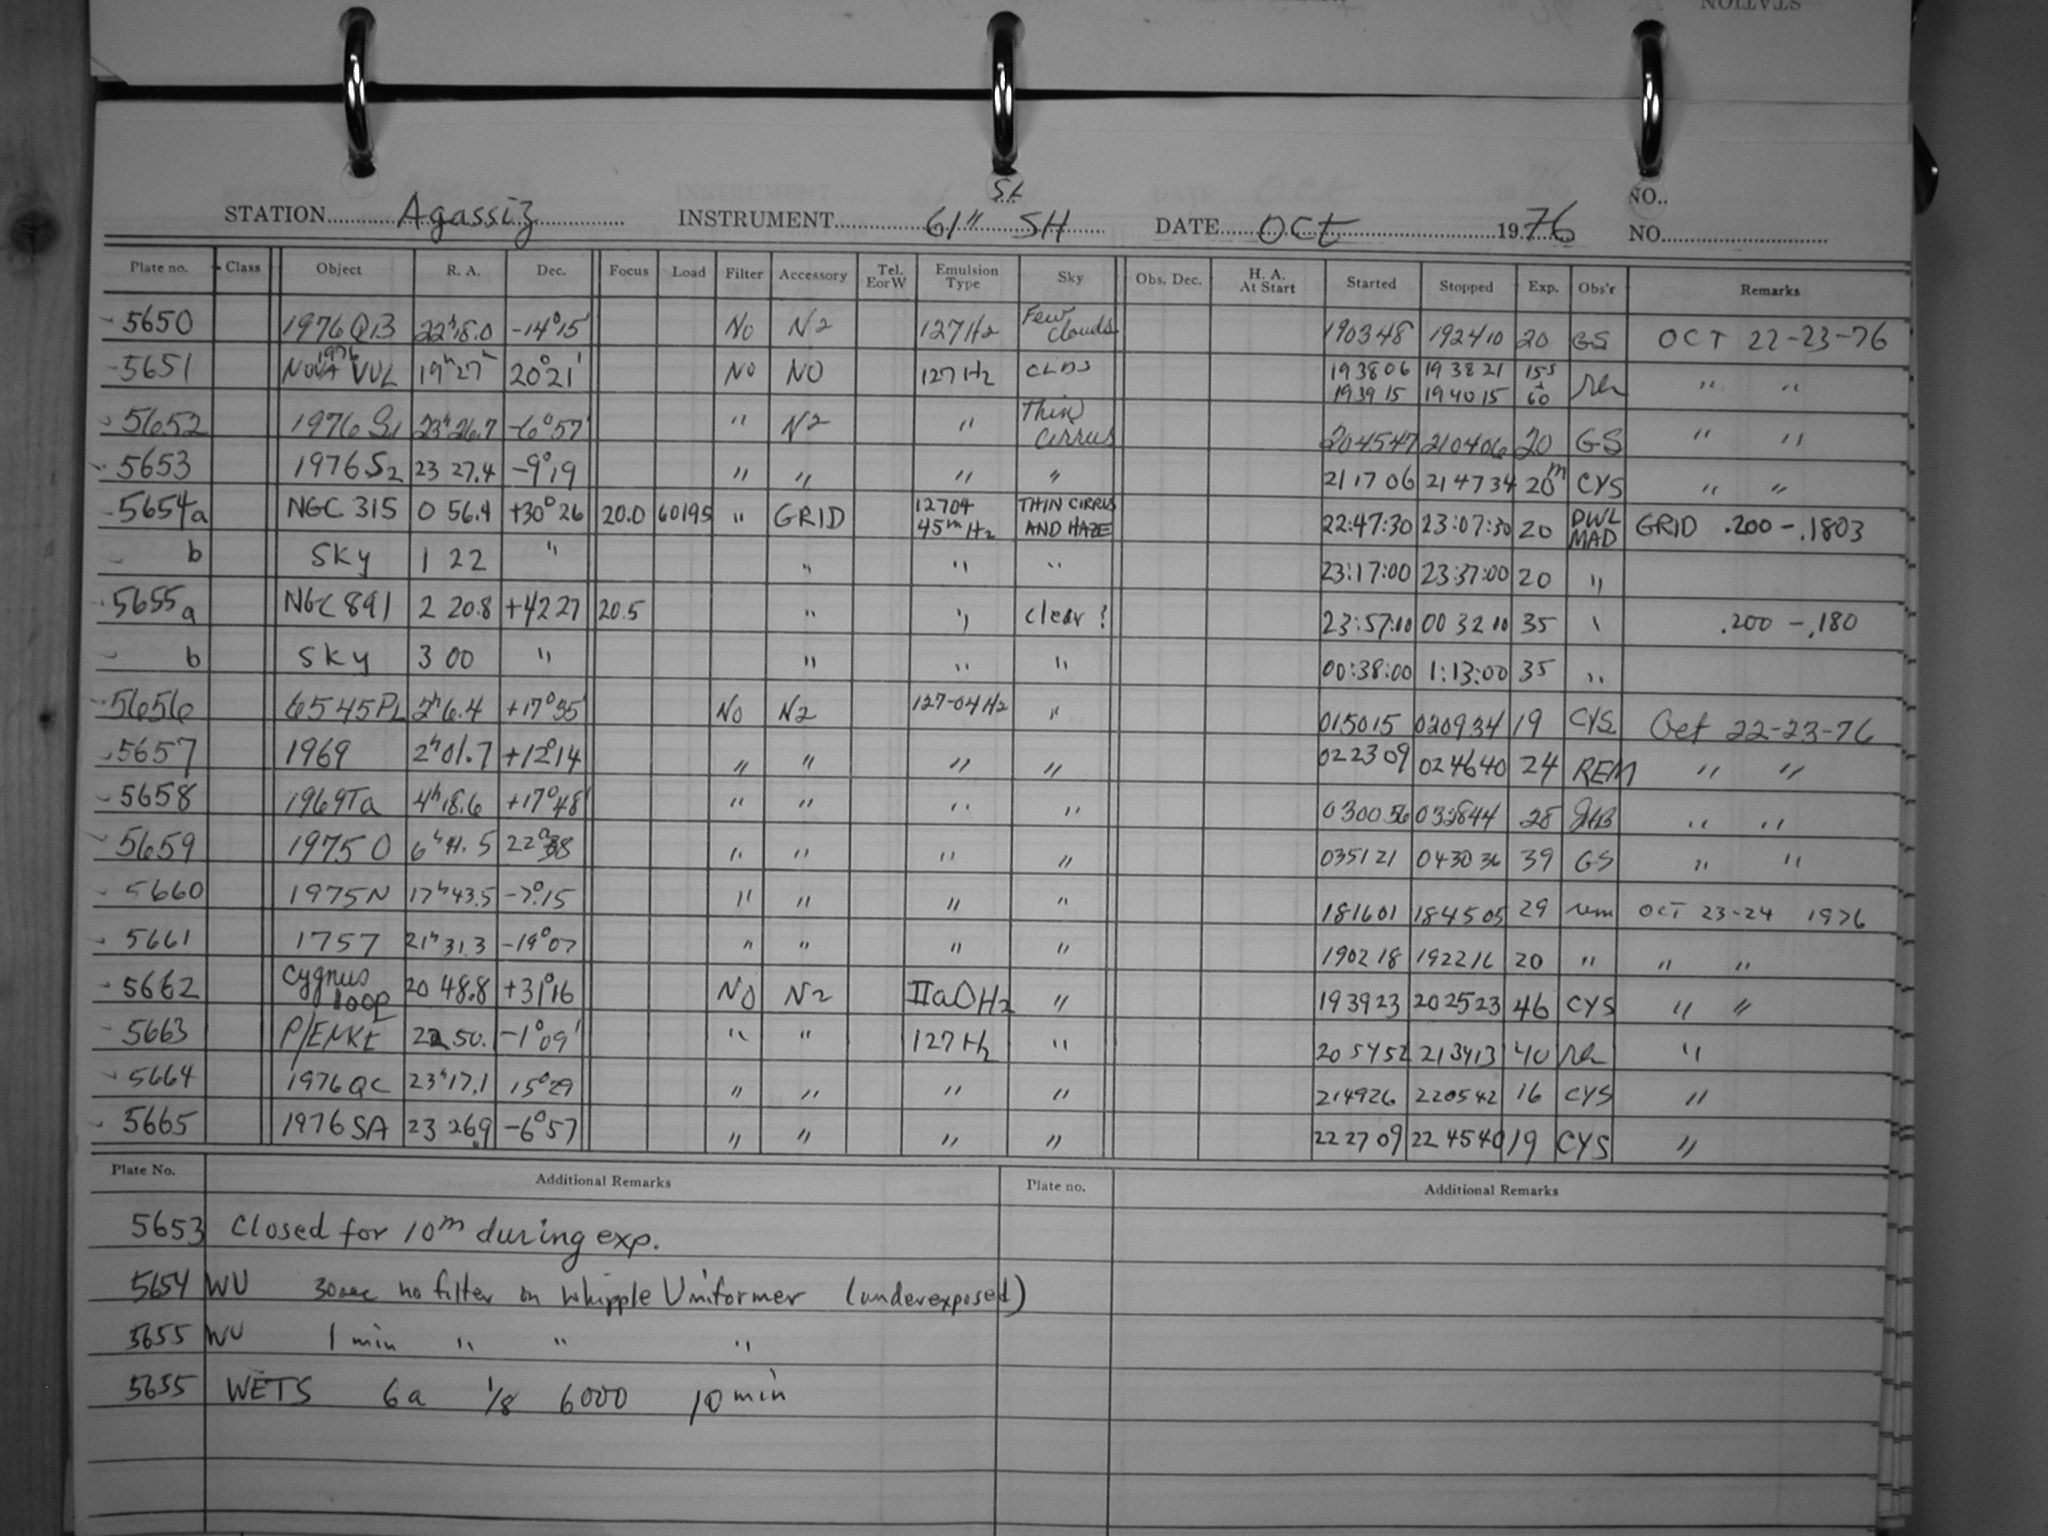 STATION Agassiz INSTRUMENT 61" SH St DATE Oct 1976 NO..
NO.
Plate no. Class Object R. A. Dec. Focus Load Filter Accessory Tel. E or W Emulsion Type Sky Obs. Dec. H. A. At Start Started Stopped Exp. Obs'r Remarks
5650 1976 QB 22h 18.0 -14°15' No N2 127 H2 Few clouds 190348 192410 20 GS OCT 22-23-76
5651 NOVA 1976 VUL 19h 27h 20°21' No NO 127 H2 CLDS 193806 193821 15s + " "
193915 194015 60
5652 1976 S1 23h 26.7 -6°57' " N2 " Thin cirrus 204547 210406 20 GS " "
5653 1976 S2 23 27.4 -9°19 " " " " 211706 214734 20m CYS " "
5654a NGC 315 0 56.4 +30° 26 20.0 60195 " GRID 12704 45m H2 THIN CIRRUS AND HAZE 22:47:30 23:07:30 20 DWL MAD GRID .200 - .1803
b Sky 1 22 " " " " 23:17:00 23:37:00 20 "
5655a NGC 891 2 20.8 +42 27 20.5 " " clear? 23:57:10 00 32 10 35 " .200 - .180
b Sky 3 00 " " " " 00:38:00 1:13:00 35 "
5656 6545PL 2h 6.4 +17°35' No N2 127-04 H2 " 015015 020934 19 CYS Oct 22-23-76
5657 1969 2h 01.7 +12°14 " " " " 022309 024640 24 REM " "
5658 1969Ta 4h 18.6 +17°48' " " " " 030056 032844 28 " "
5659 1975 O 6h 41.5 22°38 " " " " 035121 043036 39 GS " "
5660 1975N 17h 43.5 -7°15 " " " " 181601 184505 29 rem OCT 23-24 1976
5661 1757 21h 31.3 -19°07 " " " " 190218 192216 20 " " "
5662 Cygnus loop 20 48.8 +31°16 NO N2 IIaO H2 " 193923 202523 46 CYS " "
5663 P/ENKE 22 50. -1°09' " " 127 H2 " 205452 213413 40 "
5664 1976 QC 23h 17.1 15°29 " " " " 214926 220542 16 CYS "
5665 1976 SA 23 26.9 -6°57 " " " " 222709 224540 19 CYS "
Plate No. Additional Remarks Plate no. Additional Remarks
5653 Closed for 10m during exp.
5654 WU 30sec no filter on Whipple Uniformer (underexposed)
5655 WU 1 min " " "
5655 WETS 6a 1/8 6000 10 min